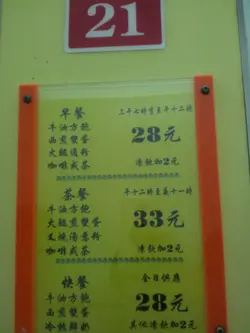 21
早餐 上午七時至下午十二時
牛油方飽
西煎雙蛋 28元
火腿通粉
咖啡或茶 凍飲加2元
茶餐 下午十二時至晚十一時
牛油方飽
火腿煎雙蛋 33元
叉燒湯意粉
咖啡或茶 凍飲加2元
快餐 全日供應
牛油方飽
火腿煎雙蛋 28元
冷熱鮮奶 其他凍飲加2元